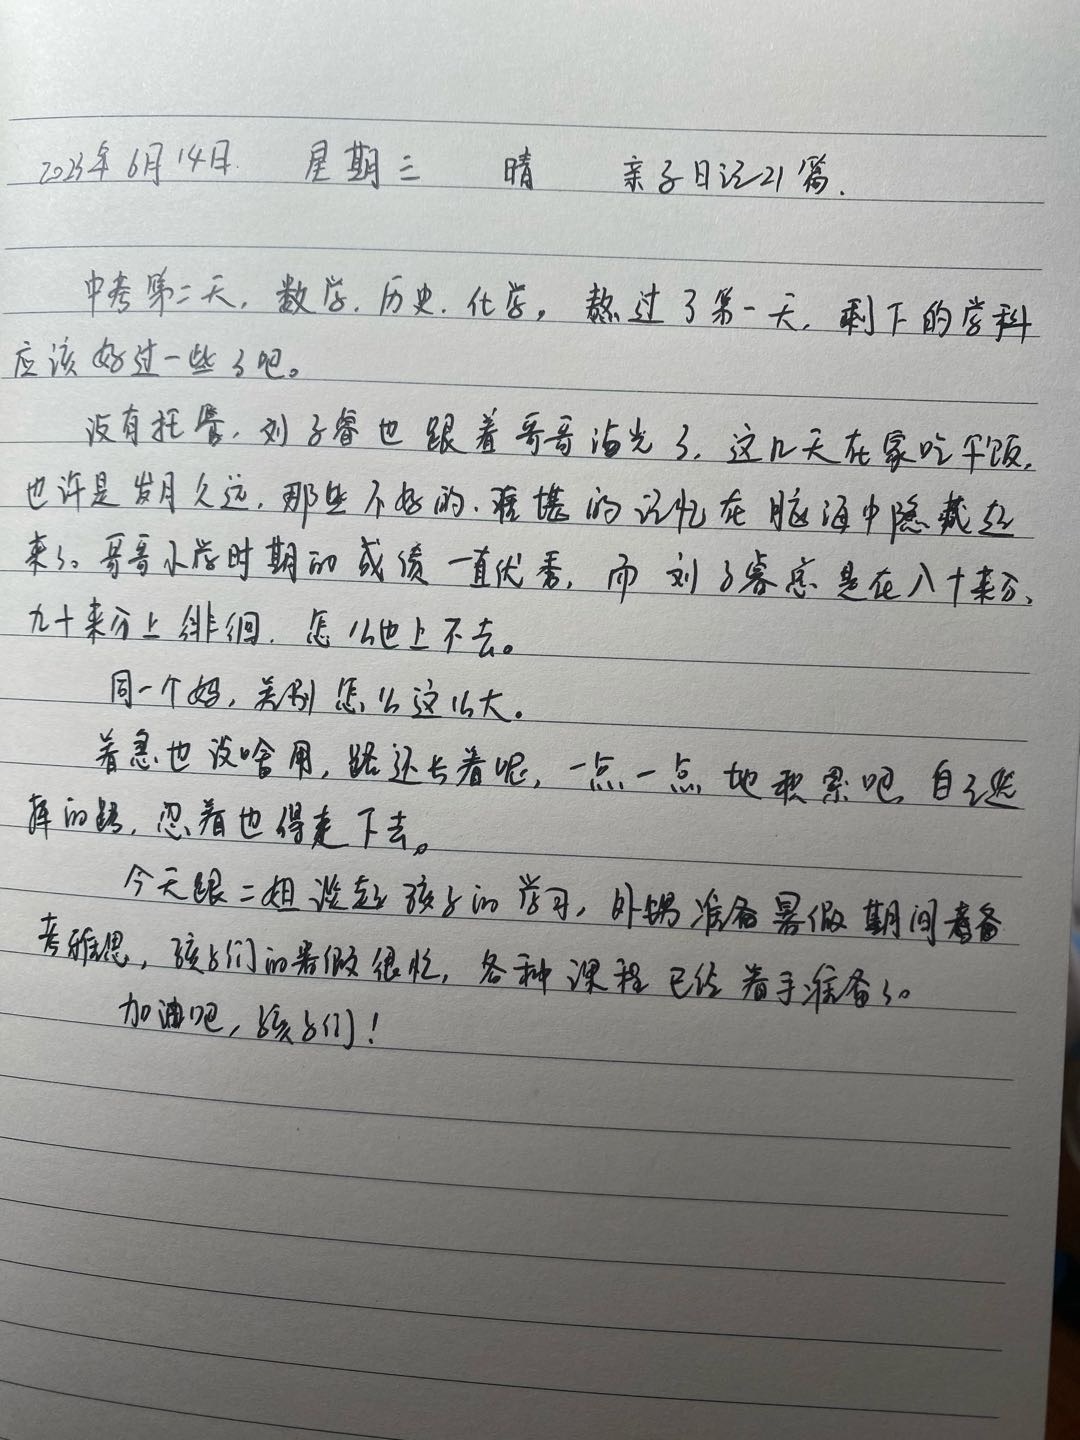 2023年6月14日. 星期三 晴 亲子日记21篇.
中考第二天, 数学. 历史. 化学。熬过了第一天, 剩下的学科
应该好过一些了吧。
没有托管, 刘子睿也跟着哥哥沾光了, 这几天在家吃午饭,
也许是岁月久远, 那些不好的、难堪的记忆在脑海中隐藏起
来了。哥哥小学时期的成绩一直优秀, 而刘子睿总是在八十来分、
九十来分上徘徊. 怎么也上不去。
同一个妈, 差别怎么这么大。
着急也没啥用, 路还长着呢, 一点一点地积累吧 自己选
择的路, 忍着也得走下去。
今天跟二姐谈起孩子的学习, 外甥准备暑假期间准备
考雅思, 孩子们的暑假很忙, 各种课程已经着手准备了。
加油吧, 孩子们!